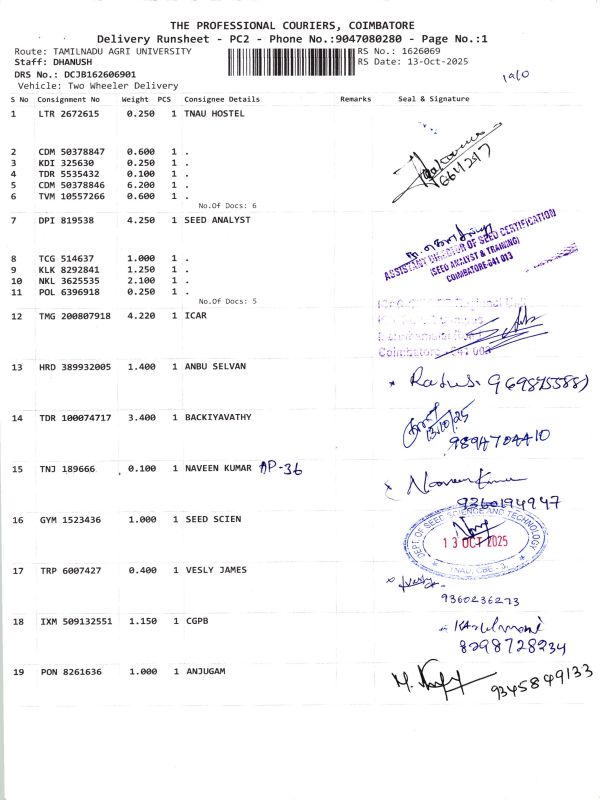 THE PROFESSIONAL COURIERS, COIMBATORE
Delivery Runsheet - PC2 - Phone No.:9047080280 - Page No.:1
Route: TAMILNADU AGRI UNIVERSITY RS No.: 1626069
Staff: DHANUSH RS Date: 13-Oct-2025
DRS No.: DCJB162606901
Vehicle: Two Wheeler Delivery
S No Consignment No Weight PCS Consignee Details Remarks Seal & Signature
1 LTR 2672615 0.250 1 TNAU HOSTEL
2 CDM 50378847 0.600 1 .
3 KDI 325630 0.250 1 .
4 TDR 5535432 0.100 1 .
5 CDM 50378846 6.200 1 .
6 TVM 10557266 0.600 1 .
No.Of Docs: 6
7 DPI 819538 4.250 1 SEED ANALYST
ASSISTANT DIRECTOR OF SEED CERTIFICATION
(SEED ANALYST & TRAINING)
COIMBATORE-641 013
8 TCG 514637 1.000 1 .
9 KLK 8292841 1.250 1 .
10 NKL 3625535 2.100 1 .
11 POL 6396918 0.250 1 .
No.Of Docs: 5
12 TMG 200807918 4.220 1 ICAR
Regional
Coimbatore
13 HRD 389932005 1.400 1 ANBU SELVAN
14 TDR 100074717 3.400 1 BACKIYAVATHY
13/10/25
9894704410
15 TNJ 189666 0.100 1 NAVEEN KUMAR AP-36
Naveen Kumar
9360194947
16 GYM 1523436 1.000 1 SEED SCIEN
DEPT. OF SEED SCIENCE AND TECHNOLOGY
13 OCT 2025
TNAU, CBE - 3.
17 TRP 6007427 0.400 1 VESLY JAMES
Vesly
9360236273
18 IXM 509132551 1.150 1 CGPB
8298728234
19 PON 8261636 1.000 1 ANJUGAM
9345849133